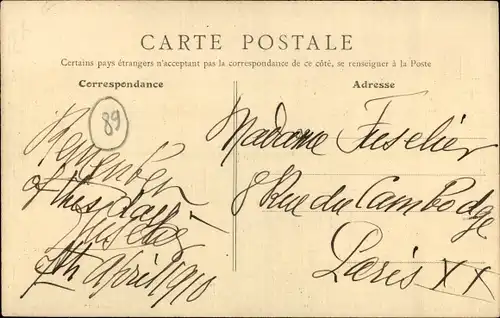 CARTE POSTALE
Certains pays étrangers n'acceptant pas la correspondance de ce côté, se renseigner à la Poste
Correspondance
Adresse
89
Remember
of this day!
7th April 1910
Madame Fuselier
8 Rue du Cambodge
Paris XX